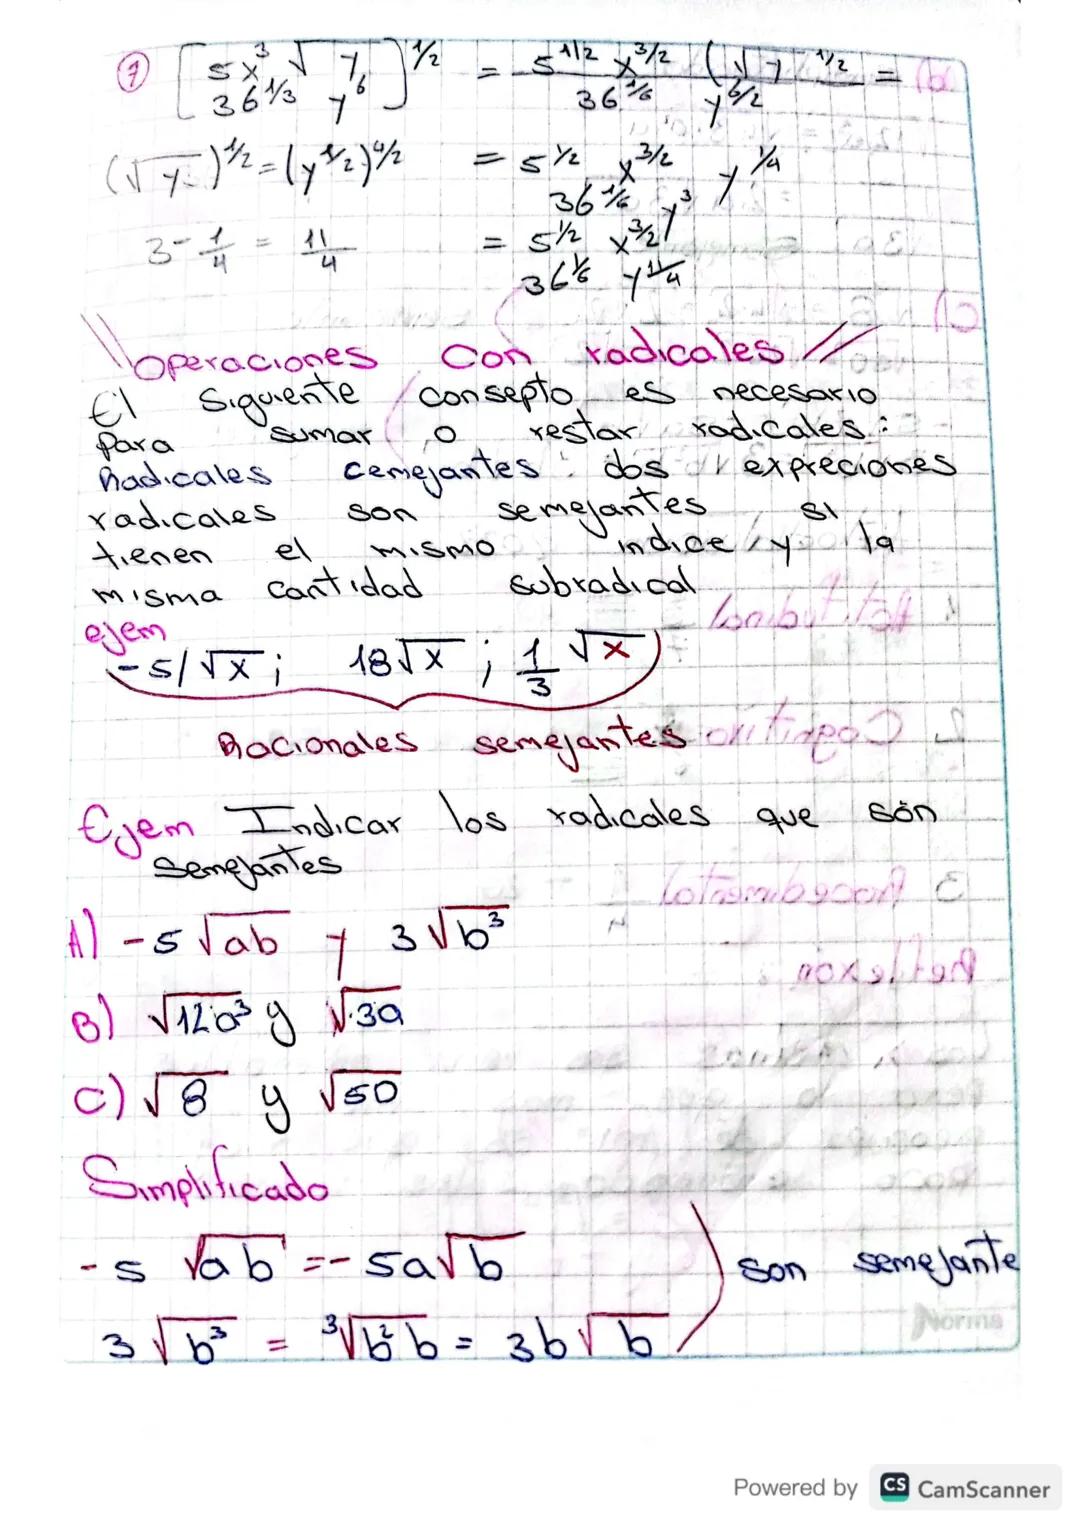 ⑦ [5x³ √y / 36^1/3 y⁶]^1/2 = 5^1/2 x^3/2 (√y)^1/2 / 36^1/6 y^6/2 =
(√y)^1/2 = (y^1/2)^1/2 = 5^1/2 x^3/2 y^1/4 / 36^1/6 y³
3 - 1/4 = 11/4 = 5^1/2 x^3/2 / 36^1/6 y^11/4
\\ Operaciones Con radicales //
El Siguiente consepto es necesario
para sumar o restar radicales:
Radicales cemejantes: dos expreciones
radicales son semejantes si
tienen el mismo indice y la
misma cantidad subradical
ejem
-5/√x; 18√x; 1/3 √x
Racionales semejantes
Ejem Indicar los radicales que són
Semejantes
A) -5 √ab y 3 √b³
B) √12a³ y √3a
C) √8 y √50
Simplificado
-5 √ab = -5a√b
son semejante
3 √b³ = ³√b² b = 3b√b
Norma
Powered by CS CamScanner